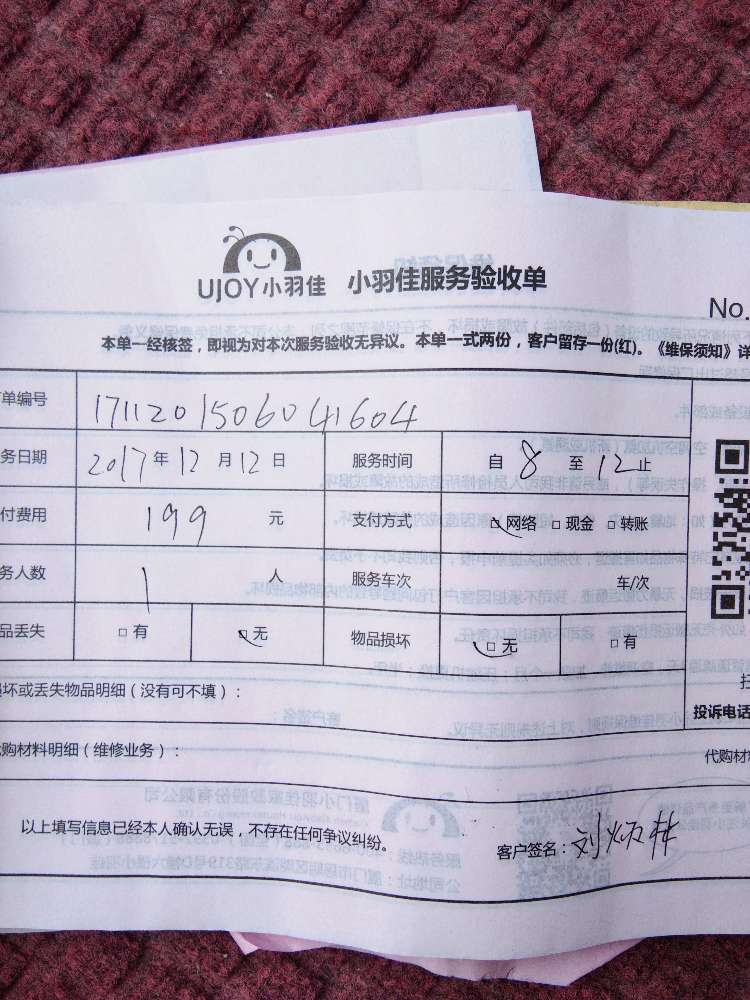 UJOY小羽佳 小羽佳服务验收单
No.
本单一经核签，即视为对本次服务验收无异议。本单一式两份，客户留存一份(红)。《维保须知》详
单编号 1711201506041604
务日期 2017年12月12日 服务时间 自8至12止
付费用 199元 支付方式 □网络 □现金 □转账
务人数 1人 服务车次 车/次
品丢失 □有 □无 物品损坏 □无 □有
损坏或丢失物品明细（没有可不填）：
投诉电话
代购材料明细（维修业务）：
代购材
以上填写信息已经本人确认无误，不存在任何争议纠纷。
客户签名：刘炳林